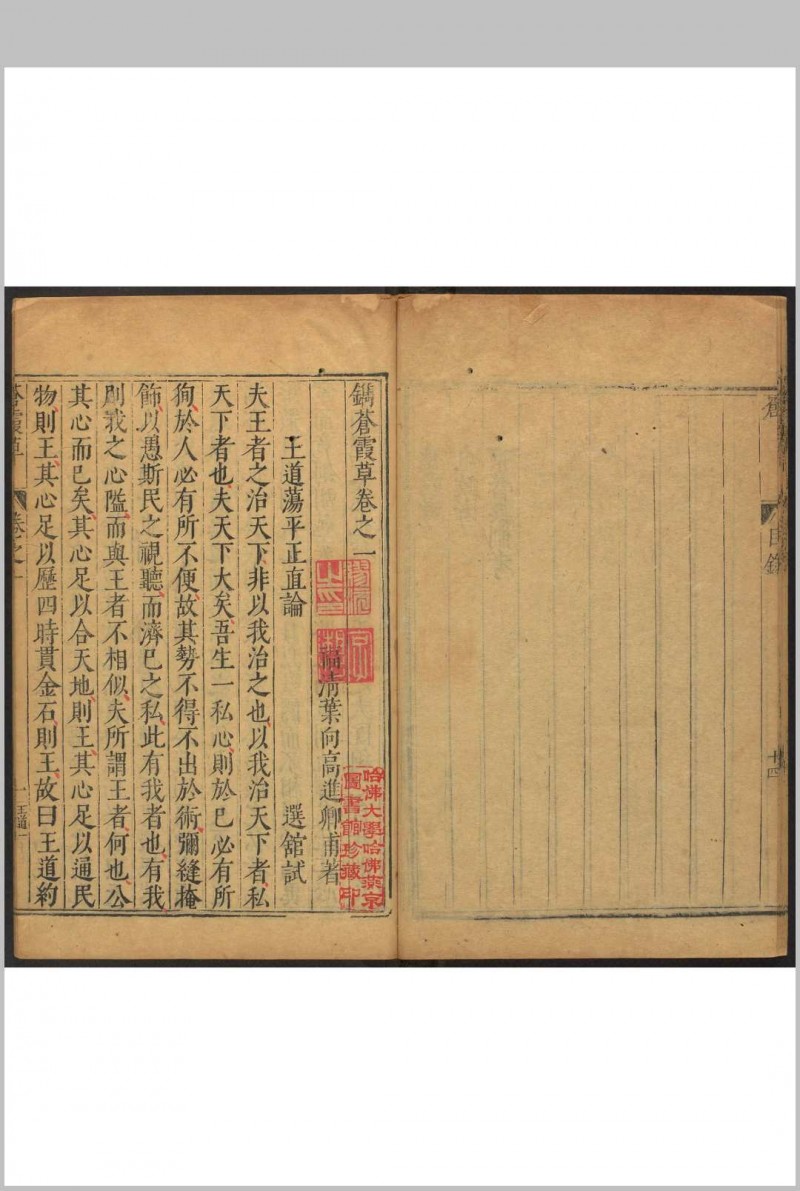 目錄
十四
鐫蒼霞草卷之一
福清葉向高進卿甫著
哈佛大學哈佛燕京
圖書館珍藏印
王道蕩平正直論 選館試
夫王者之治天下非以我治之也以我治天下者私
天下者也夫天下大矣吾生一私心則於己必有所
狥於人必有所不便故其勢不得不出於術彌縫掩
飾以愚斯民之視聽而濟己之私此有我者也有我
則我之心隘而與王者不相似夫所謂王者何也公
其心而已矣其心足以合天地則王其心足以通民
物則王其心足以歷四時貫金石則王故曰王道約
蒼霞草 卷之一 一